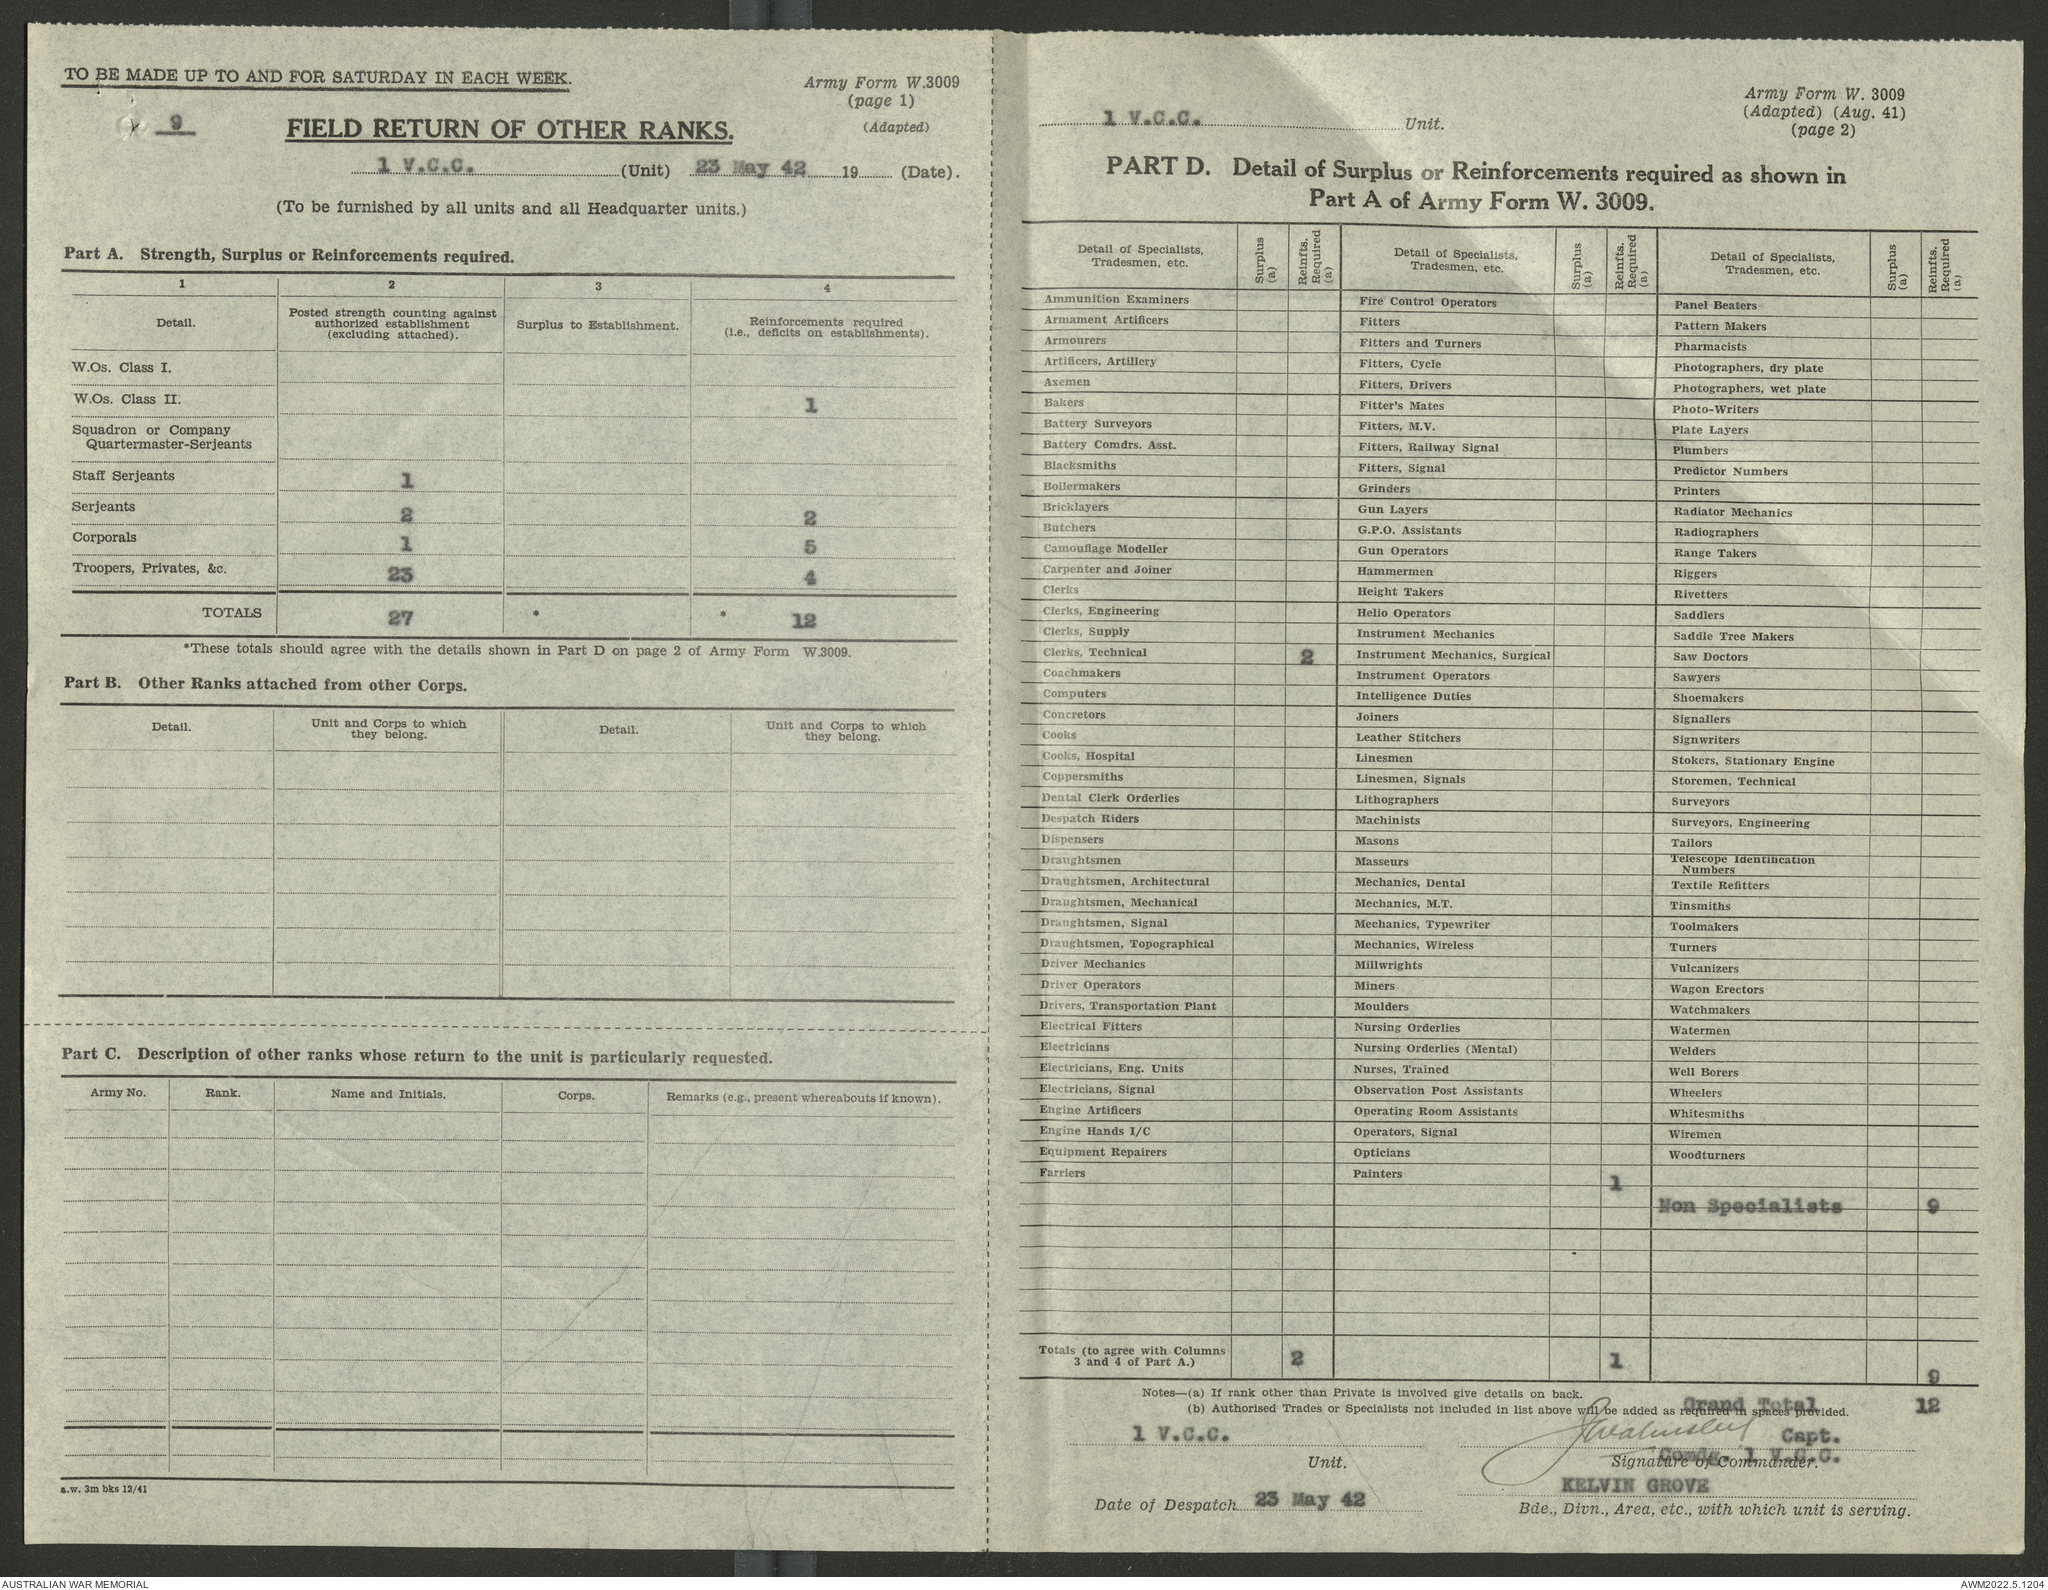 TO BE MADE UP TO AND FOR SATURDAY IN EACH WEEK.
Army Form W.3009
(page 1)
(Adapted)
9
FIELD RETURN OF OTHER RANKS.
1 V.C.C. (Unit) 23 May 42 19 (Date).
(To be furnished by all units and all Headquarter units.)
Part A. Strength, Surplus or Reinforcements required.
1 2 3 4
Detail. Posted strength counting against authorized establishment (excluding attached). Surplus to Establishment. Reinforcements required (i.e., deficits on establishments).
W.Os. Class I.
W.Os. Class II. 1
Squadron or Company
Quartermaster-Serjeants
Staff Serjeants 1
Serjeants 2 2
Corporals 1 5
Troopers, Privates, &c. 23 4
TOTALS 27 * * 12
*These totals should agree with the details shown in Part D on page 2 of Army Form W.3009.
Part B. Other Ranks attached from other Corps.
Detail. Unit and Corps to which they belong. Detail. Unit and Corps to which they belong.
Part C. Description of other ranks whose return to the unit is particularly requested.
Army No. Rank. Name and Initials. Corps. Remarks (e.g., present whereabouts if known).
a.w. 3m bks 12/41
1 V.C.C. Unit.
Army Form W. 3009
(Adapted) (Aug. 41)
(page 2)
PART D. Detail of Surplus or Reinforcements required as shown in
Part A of Army Form W. 3009.
Detail of Specialists, Tradesmen, etc. Surplus (a) Reinfts. Required (a) Detail of Specialists, Tradesmen, etc. Surplus (a) Reinfts. Required (a) Detail of Specialists, Tradesmen, etc. Surplus (a) Reinfts. Required (a)
Ammunition Examiners Fire Control Operators Panel Beaters
Armament Artificers Fitters Pattern Makers
Armourers Fitters and Turners Pharmacists
Artificers, Artillery Fitters, Cycle Photographers, dry plate
Axemen Fitters, Drivers Photographers, wet plate
Bakers Fitter's Mates Photo-Writers
Battery Surveyors Fitters, M.V. Plate Layers
Battery Comdrs. Asst. Fitters, Railway Signal Plumbers
Blacksmiths Fitters, Signal Predictor Numbers
Boilermakers Grinders Printers
Bricklayers Gun Layers Radiator Mechanics
Butchers G.P.O. Assistants Radiographers
Camouflage Modeller Gun Operators Range Takers
Carpenter and Joiner Hammermen Riggers
Clerks Height Takers Rivetters
Clerks, Engineering Helio Operators Saddlers
Clerks, Supply Instrument Mechanics Saddle Tree Makers
Clerks, Technical 2 Instrument Mechanics, Surgical Saw Doctors
Coachmakers Instrument Operators Sawyers
Computers Intelligence Duties Shoemakers
Concretors Joiners Signallers
Cooks Leather Stitchers Signwriters
Cooks, Hospital Linesmen Stokers, Stationary Engine
Coppersmiths Linesmen, Signals Storemen, Technical
Dental Clerk Orderlies Lithographers Surveyors
Despatch Riders Machinists Surveyors, Engineering
Dispensers Masons Tailors
Draughtsmen Masseurs Telescope Identification Numbers
Draughtsmen, Architectural Mechanics, Dental Textile Refitters
Draughtsmen, Mechanical Mechanics, M.T. Tinsmiths
Draughtsmen, Signal Mechanics, Typewriter Toolmakers
Draughtsmen, Topographical Mechanics, Wireless Turners
Driver Mechanics Millwrights Vulcanizers
Driver Operators Miners Wagon Erectors
Drivers, Transportation Plant Moulders Watchmakers
Electrical Fitters Nursing Orderlies Watermen
Electricians Nursing Orderlies (Mental) Welders
Electricians, Eng. Units Nurses, Trained Well Borers
Electricians, Signal Observation Post Assistants Wheelers
Engine Artificers Operating Room Assistants Whitesmiths
Engine Hands I/C Operators, Signal Wiremen
Equipment Repairers Opticians Woodturners
Farriers Painters 1
Non Specialists 9
Totals (to agree with Columns 3 and 4 of Part A.) 2 1 9
Notes—(a) If rank other than Private is involved give details on back.
Grand Total 12
(b) Authorised Trades or Specialists not included in list above will be added as required in spaces provided.
1 V.C.C. Capt.
Comdg. 1 V.C.C.
Unit. Signature of Commander.
KELVIN GROVE
Date of Despatch 23 May 42 Bde., Divn., Area, etc., with which unit is serving.
AUSTRALIAN WAR MEMORIAL AWM2022.5.1204